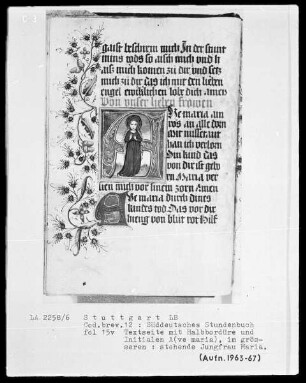 gaist beschirm mich In der stunt
mins tods so aisch mich und h
ais mich komen zu dir und setz
mich zu dir das ich mit den lieben
engel ewiklichen lobe dich amen
Von unser lieben frowen
Ve maria
ros an alle
mir
han ich verlorn
Din kind das
von dir ist
Maria ver
lich mich vor sinem zorn Amen
Ve maria durch dines
kindes tod Das vor dir
hieng von blut rot Hilf
LA 2258/6 Stuttgart LB
Cod.brev.12 : Süddeutsches Stundenbuch
fol 15v Textseite mit Halbbordüre und
Initialen A(ve maria), im grös-
seren : stehende Jungfrau Maria.
(Aufn.1963-67)